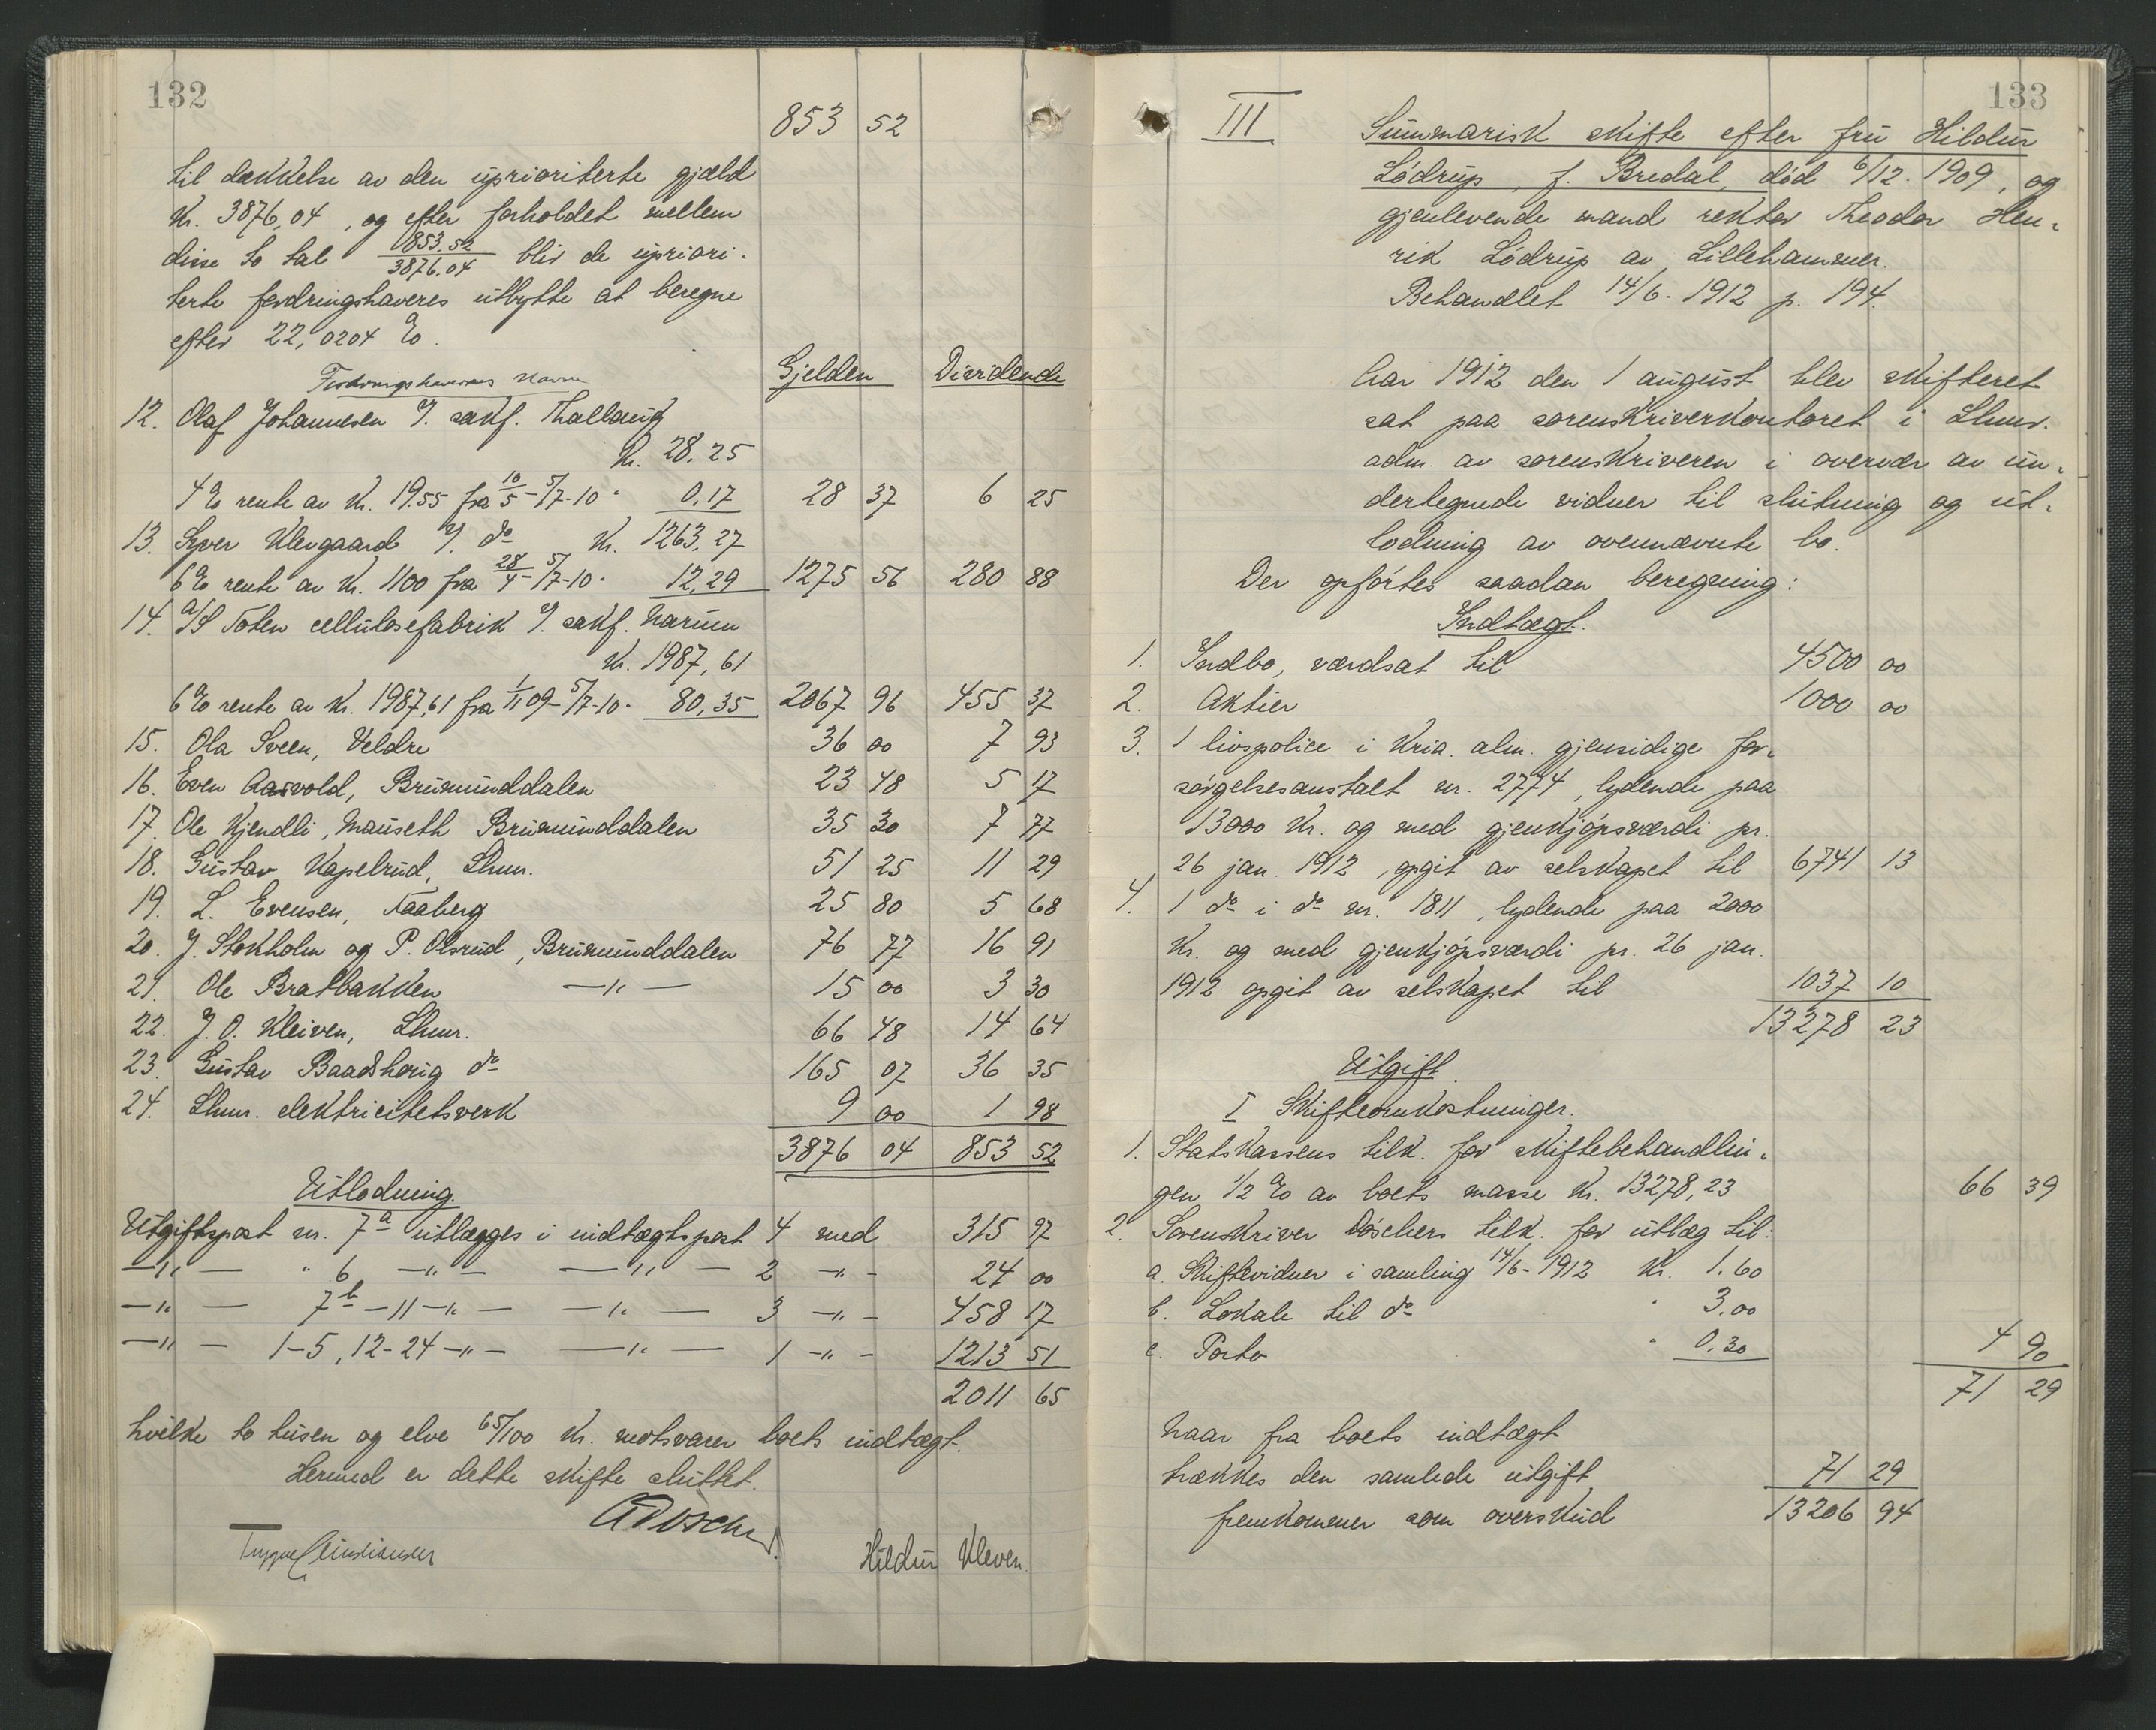 132
853 52
til dækkelse av den uprioriterte gjæld
kr. 3876,04, og efter forholdet mellem
disse to tal 853.52/3876.04 blir de upriori-
terte fordringshaveres utbytte at beregne
efter 22,0204 %.
Fordringshavernes navne Gjelden Dividende
12. Olaf Johannesen v. sakf. Thallaug
kr. 28,25
4 % rente av kr. 19.55 fra 10/5-5/7-10 " 0,17 28 37 6 25
13. Syver Klevgaard v. do kr. 1263,27
6 % rente av kr. 1100 fra 28/4-5/7-10 " 12,29 1275 56 280 88
14. A/S Toten cellulosefabrik v. sakf. Narum
kr. 1987,61
6 % rente av kr. 1987,61 fra 1/11 09-5/7-10 " 80,35 2067 96 455 37
15. Ola Sveen, Veldre 36 00 7 93
16. Even Aasvold, Brumunddalen 23 48 5 17
17. Ole Kjendli, Mauseth Brumunddalen 35 30 7 77
18. Gustav Kapelrud, Lhmr. 51 25 11 29
19. L. Evensen, Faaberg 25 80 5 68
20. J. Stokholm og P. Olsrud, Brumunddalen 76 77 16 91
21. Ole Bratbakken —"— 15 00 3 30
22. J. O. Kleiven, Lhmr. 66 48 14 64
23. Gustav Baadshaug do 165 07 36 35
24. Lhmr. elektricitetsverk 9 00 1 98
3876 04 853 52
Utlodning.
Utgiftspost nr. 7a utlægges i indtægtspost 4 med 315 97
—"— " 6 —"— —"— 2 —"— 24 00
—"— 7b-11 —"— —"— 3 —"— 458 17
—"— 1-5, 12-24 —"— —"— 1 —"— 1213 51
2011 65
hvilke to tusen og elve 65/100 kr. motsvarer boets indtægt.
Hermed er dette skifte sluttet.
Hildur Kleven.
133
III Summarisk skifte efter fru Hildur
Lødrup, f. Bredal, død 6/12. 1909, og
gjenlevende mand rektor Theodor Hen-
rik Lødrup av Lillehammer.
Behandlet 14/6. 1912 p. 194.
Aar 1912 den 1 august blev skifteret
sat paa sorenskriverkontoret i Lhmr.
adm. av sorenskriveren i overvær av un-
dertegnede vidner til slutning og ut-
lodning av ovennævnte bo.
Der opførtes saadan beregning:
Indtægt.
1. Indbo, værdsat til 4500 00
2. Aktier 1000 00
3. 1 livspolice i Kria. alm. gjensidige for-
sørgelsesanstalt nr. 2774, lydende paa
13000 kr. og med gjenkjøpsværdi pr.
26 jan. 1912, opgit av selskapet til 6741 13
4. 1 do i do nr. 1811, lydende paa 2000
kr. og med gjenkjøpsværdi pr. 26 jan.
1912 opgit av selskapet til 1037 10
13278 23
Utgift.
I Skifteomkostninger.
1. Statskassens tilk. for skiftebehandlin-
gen 1/2 % av boets masse kr. 13278,23 66 39
2. Sorenskriver Döschers tilk. for utlæg til:
a. Skiftevidner i samling 14/6-1912 kr. 1.60
b. Lokale til do " 3.00
c. Porto " 0,30 4 90
71 29
Naar fra boets indtægt
trækkes den samlede utgift 71 29
fremkommer som overskud 13206 94